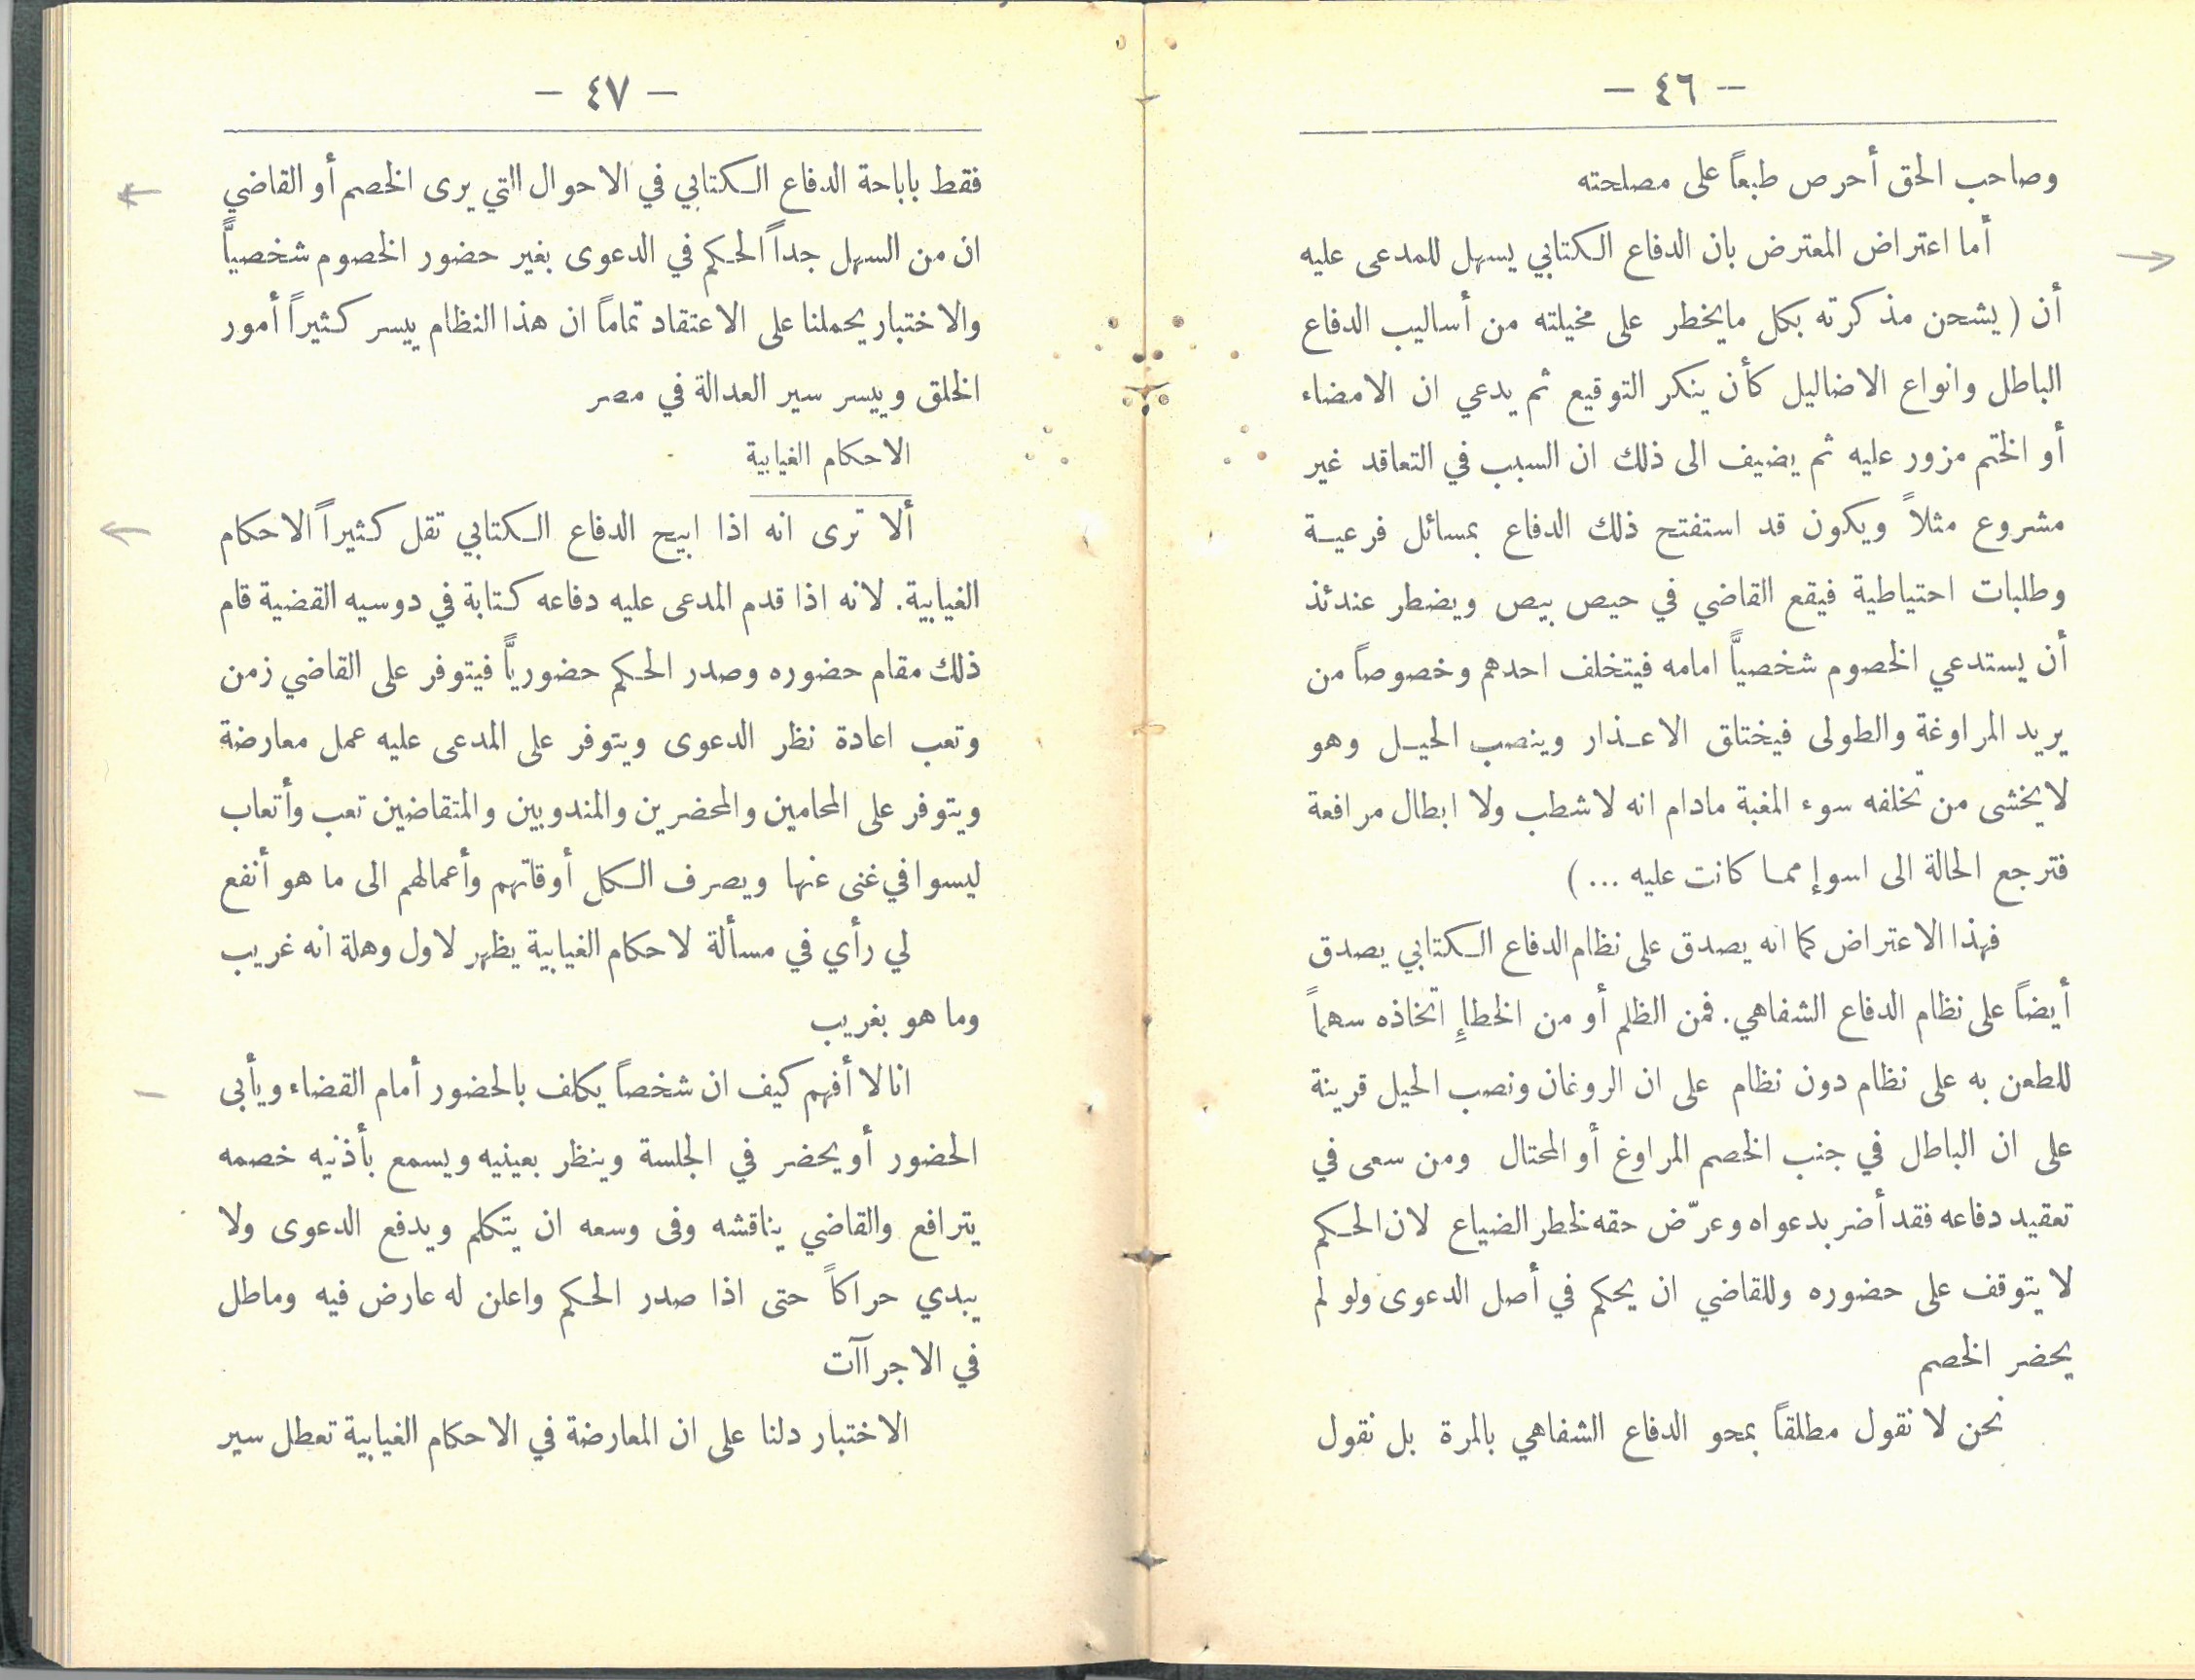 — ٤٦ —
وصاحب الحق أحرص طبعاً على مصلحته
أما اعتراض المعترض بان الدفاع الكتابي يسهل للمدعى عليه
أن ( يشحن مذكرته بكل مايخطر على مخيلته من أساليب الدفاع
الباطل وانواع الاضاليل كأن ينكر التوقيع ثم يدعي ان الامضاء
أو الختم مزور عليه ثم يضيف الى ذلك ان السبب في التعاقد غير
مشروع مثلاً ويكون قد استفتح ذلك الدفاع بمسائل فرعية
وطلبات احتياطية فيقع القاضي في حيص بيص ويضطر عندئذ
أن يستدعي الخصوم شخصياً امامه فيتخلف احدهم وخصوصاً من
يريد المراوغة والطولى فيختلق الاعذار وينصب الحيل وهو
لا يخشى من تخلفه سوء المغبة مادام انه لا شطب ولا ابطال مرافعة
فترجع الحالة الى اسوإ مما كانت عليه ... )
فهذا الاعتراض كما انه يصدق على نظام الدفاع الكتابي يصدق
أيضاً على نظام الدفاع الشفاهي. فمن الظلم أو من الخطإِ اتخاذه سهماً
للطعن به على نظام دون نظام على ان الروغان ونصب الحيل قرينة
على ان الباطل في جنب الخصم المراوغ أو المحتال ومن سعى في
تعقيد دفاعه فقد أضر بدعواه وعرّض حقه لخطر الضياع لان الحكم
لا يتوقف على حضوره وللقاضي ان يحكم في أصل الدعوى ولو لم
يحضر الخصم
نحن لا نقول مطلقاً بمحو الدفاع الشفاهي بالمرة بل نقول
— ٤٧ —
فقط باباحة الدفاع الكتابي في الاحوال التي يرى الخصم أو القاضي
ان من السهل جداً الحكم في الدعوى بغير حضور الخصوم شخصياً
والاختبار يحملنا على الاعتقاد تماماً ان هذا النظام ييسر كثيراً أمور
الخلق وييسر سير العدالة في مصر
الاحكام الغيابية
ألا ترى انه اذا ابيح الدفاع الكتابي تقل كثيراً الاحكام
الغيابية. لانه اذا قدم المدعى عليه دفاعه كتابة في دوسيه القضية قام
ذلك مقام حضوره وصدر الحكم حضورياً فيتوفر على القاضي زمن
وتعب اعادة نظر الدعوى ويتوفر على المدعى عليه عمل معارضة
ويتوفر على المحامين والمحضرين والمندوبين والمتقاضين تعب وأتعاب
ليسوا في غنى عنها ويصرف الكل أوقاتهم وأعمالهم الى ما هو أنفع
لي رأي في مسألة لاحكام الغيابية يظهر لاول وهلة انه غريب
وما هو بغريب
انا لا أفهم كيف ان شخصاً يكلف بالحضور أمام القضاء ويأبى
الحضور أو يحضر في الجلسة وينظر بعينيه ويسمع بأذنيه خصمه
يترافع والقاضي يناقشه وفى وسعه ان يتكلم ويدفع الدعوى ولا
يبدي حراكاً حتى اذا صدر الحكم واعلن له عارض فيه وماطل
في الاجراآت
الاختبار دلنا على ان المعارضة في الاحكام الغيابية تعطل سير